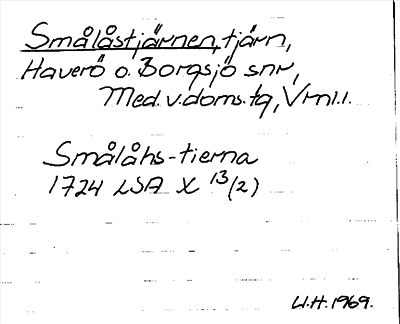 Smålåstjärnen, tjärn,
Haverö o. Borgsjö snr,
Med. v. doms. tg, Vrnl.l.
Smålåhs-tierna
1724 LSA X 13/(2)
U.H. 1969.